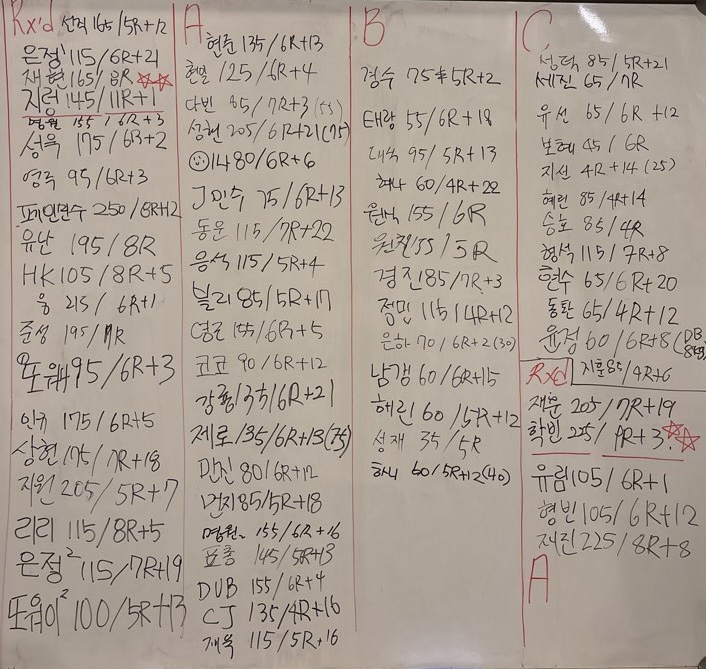 Rx'd 선리 165/5R+12
은정¹ 115/6R+21
재현 165/8R
지렁 145/11R+1
명원 155/6R+3
성욱 175/6R+2
영주 95/6R+3
파인만수 250/8R+12
유난 195/8R
HK 105/8R+5
웅 215/6R+1
준성 195/7R
95/6R+3
인규 175/6R+5
상현 175/7R+18
지원 205/5R+7
리리 115/8R+5
은정² 115/7R+19
또유이² 100/5R+13
A
현준 135/6R+13
125/6R+4
다빈 85/7R+3 (55)
성현 205/6R+21 (75)
1480/6R+6
J 민수 75/6R+13
동운 115/7R+22
응석 115/5R+4
빌리 85/5R+17
영준 155/6R+5
코코 90/6R+12
강룡 135/6R+21
제로 135/6R+13 (75)
만진 80/6R+12
먼지 85/5R+18
명원 155/6R+16
표충 145/5R+13
DUB 155/6R+4
CJ 135/4R+16
재욱 115/5R+16
B
경수 75 5R+2
태랑 55/6R+18
대욱 95/5R+13
혜나 60/4R+22
원식 155/6R
원철 155/5R
경진 85/7R+3
정민 115/4R+12
은하 70/6R+2 (30)
남갱 60/6R+15
해린 60/5R+12
성재 35/5R
하니 60/5R+12 (40)
C
성덕 85/5R+21
세진 65/7R
유선 65/6R+12
보혜 45/6R
지선 4R+14 (25)
혜련 85/4R+14
승호 85/4R
형석 115/7R+8
현수 65/6R+20
동환 65/4R+12
윤정 60/6R+8 (DB
지훈 85/4R+6
Rx'd
재훈 205/7R+19
학빈 225/9R+3
유림 105/6R+1
형빈 105/6R+12
재진 225/8R+8
A